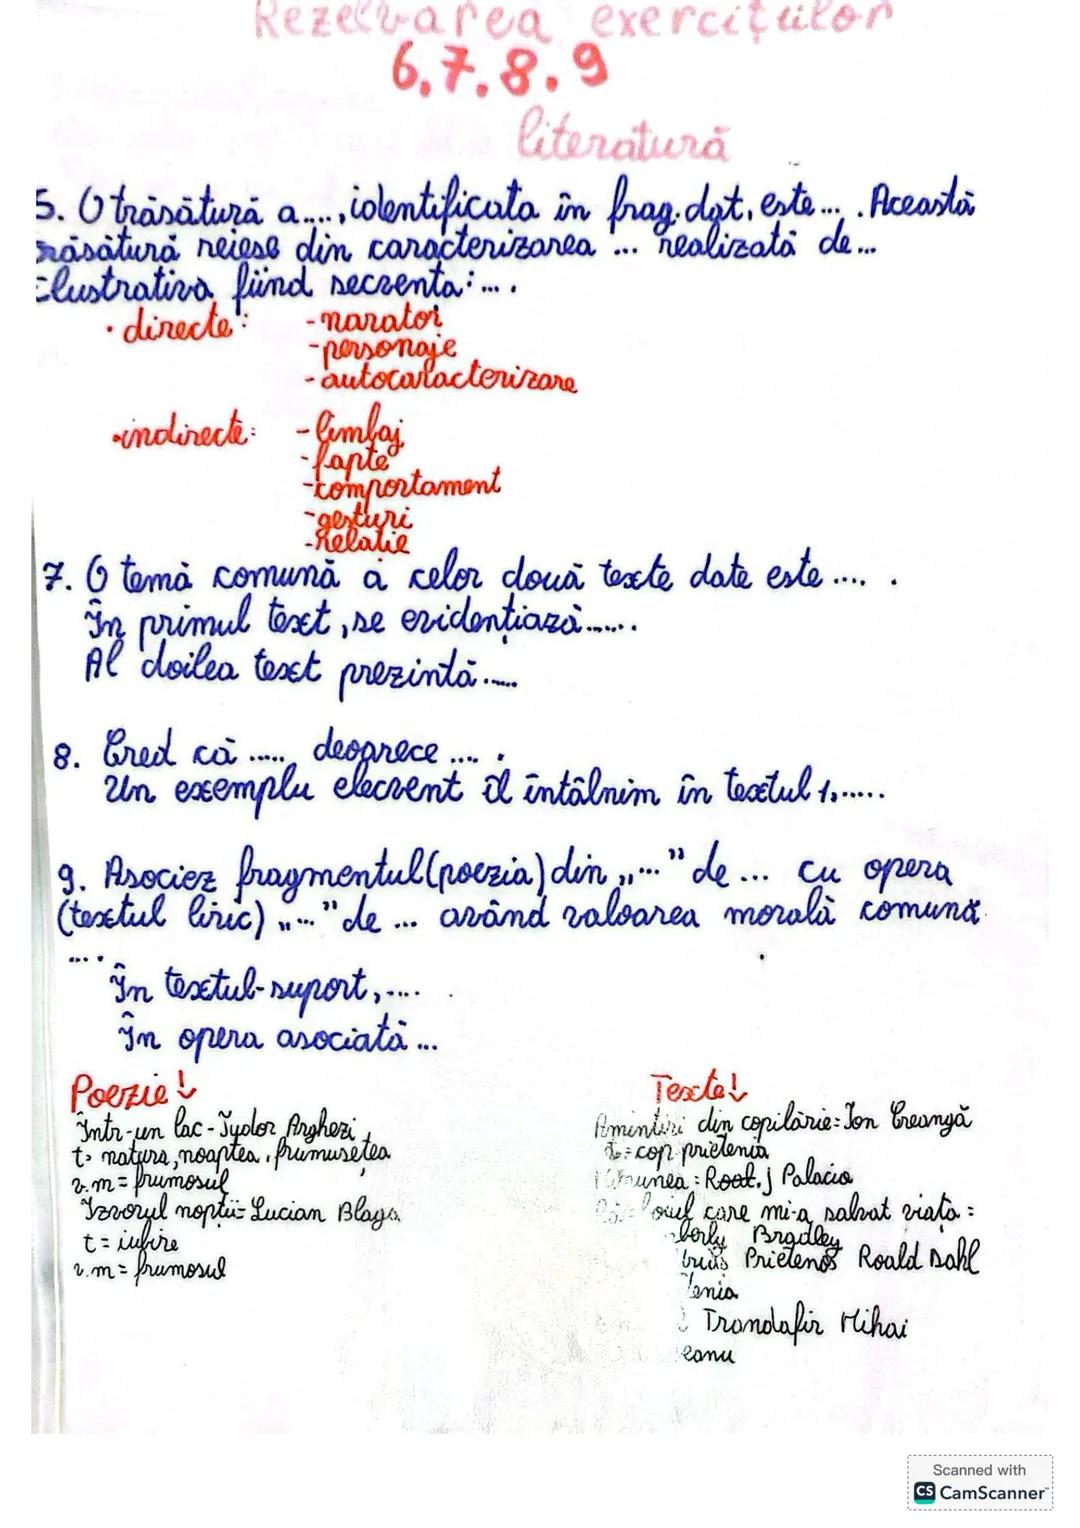 Rezolvarea exercițiilor
6.7.8.9
literatură
6. O trăsătură a ...., identificata în frag. dat, este ... . Această
trăsătură reiese din caracterizarea ... realizată de ...
Ilustrativa fiind secvența: ... .
• directe: - narator
- personaje
- autocaracterizare
• indirecte: - limbaj
- fapte
- comportament
- gesturi
- Relatie
7. O temă comună a celor două texte date este .... .
În primul text, se evidențiază ......
Al doilea text prezintă .....
8. Cred că ....., deoarece .... .
Un exemplu elecvent îl întâlnim în textul 1, .....
9. Asociez fragmentul (poezia) din „..." de ... cu opera
(textul liric) „..." de ... având valoarea morală comună
... .
În textul-suport, ....
În opera asociată ...
Poezie ↓
Într-un lac - Tudor Arghezi
t = natura, noaptea, frumusețea
v.m = frumosul
Izvorul nopții - Lucian Blaga
t = iubire
v.m = frumosul
Texte ↓
Amintiri din copilărie: Ion Creangă
t = cop prietenia
Minunea: R. J Palacio
care mi-a salvat viața =
Bradley
Prietenos Roald Dahl
Trandafir Mihai
Scanned with
CS CamScanner